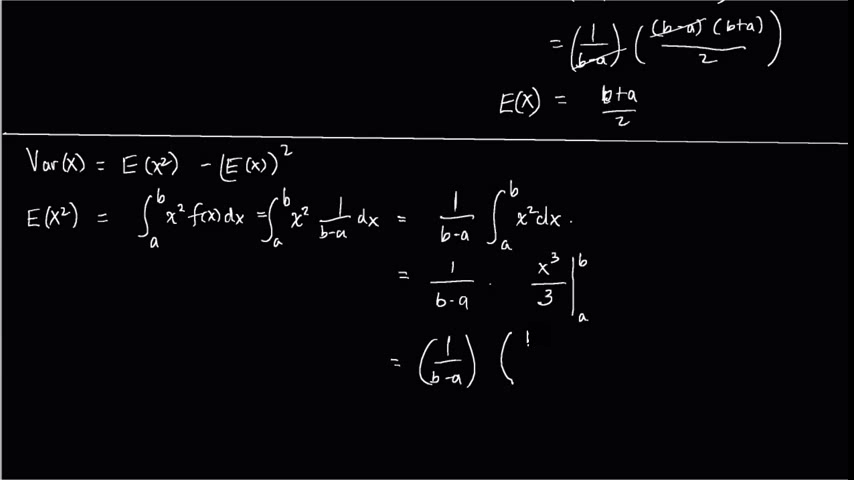 = (1/(b-a)) ((b-a)(b+a)/2)
E(X) = (b+a)/2
Var(X) = E(X²) - (E(X))²
E(X²) = ∫_a^b x² f(x) dx = ∫_a^b x² 1/(b-a) dx = 1/(b-a) ∫_a^b x² dx.
= 1/(b-a) · x³/3 |_a^b
= (1/(b-a)) (